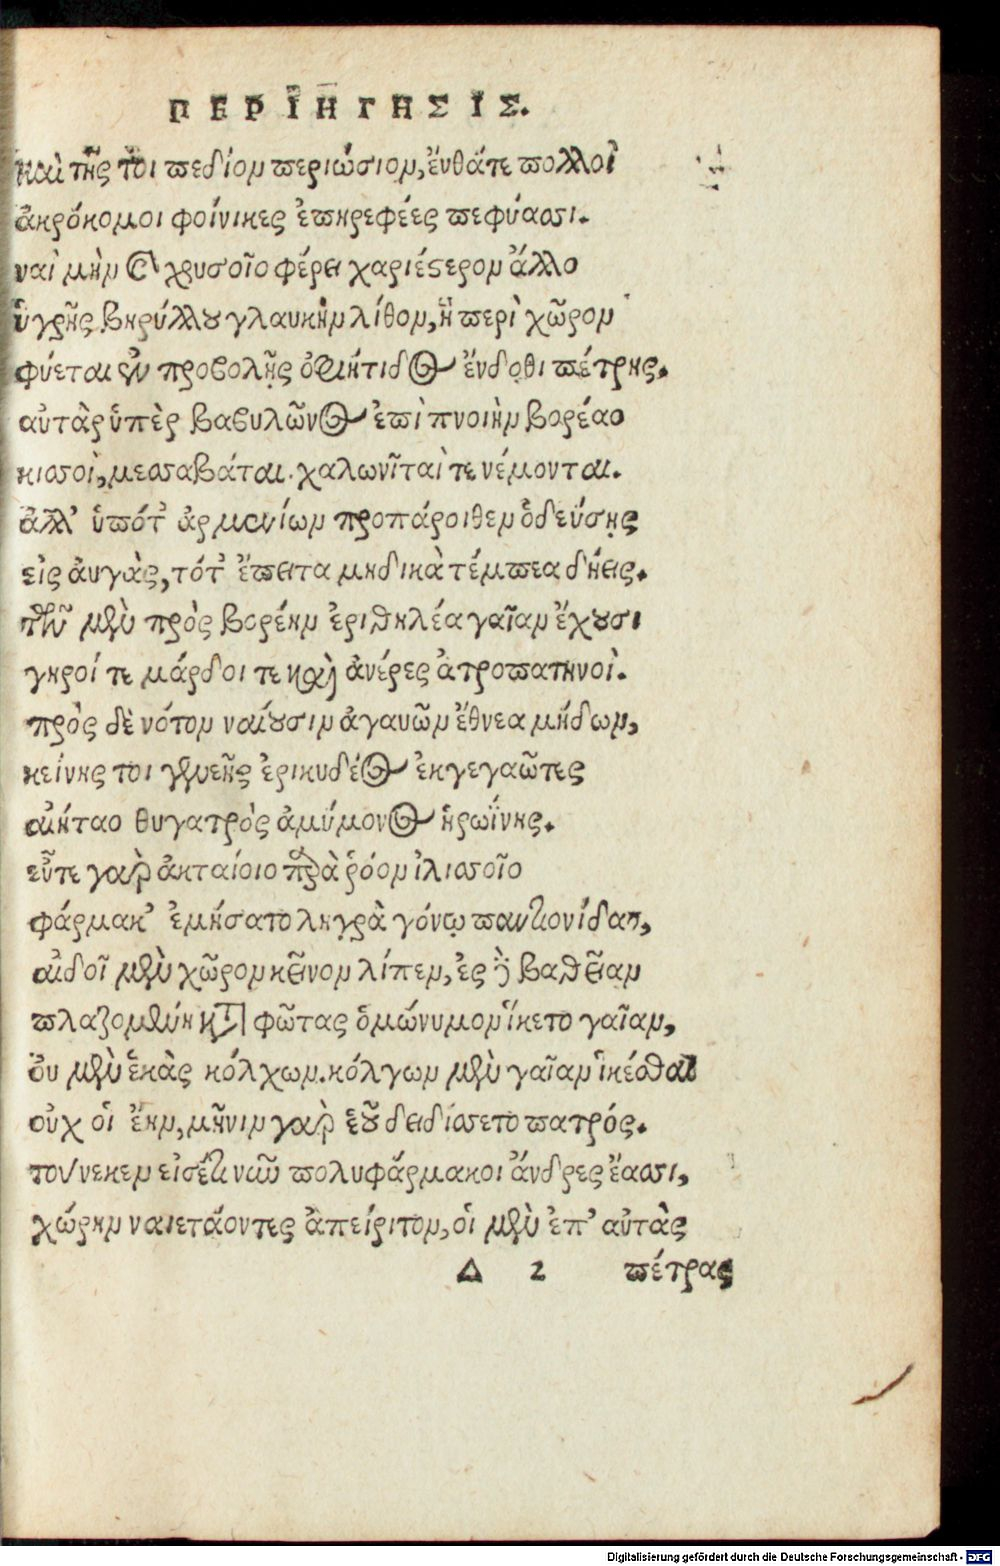 ΠΕΡΙΗΓΗΣΙΣ.
καὶ τῆς τοι πεδίον περιώσιον, ἔνθάτε πολλοὶ
ἀκρόκομοι φοίνικες ἐπηρεφέες πεφύασσι.
ναὶ μὴν καὶ χρυσοῖο φέρει χαριέστερον ἄλλο
ὑγρῆς βηρύλλου γλαυκὴν λίθον, ἣ περὶ χῶρον
φύεται ἐν προβολῆς ὀφιήτιδος ἔνδοθι πέτρης.
αὐτὰρ ὑπὲρ βαβυλῶνος ἐπὶ πνοιὴν βορέαο
κισσοὶ, μεσσαβάται. χαλωνῖταί τε νέμονται.
ἀλλ' ὑπότ' ἀρμενίων προπάροιθεν ὁδεύσῃς
εἰς ἀυγὰς, τότ' ἔπειτα μηδικὰ τέμπεα δήεις.
τῶν μὲν πρὸς βορέην ἐριθηλέα γαῖαν ἔχουσι
γηροί τε μάρδοι τε καὶ ἀνέρες ἀτροπατηνοὶ.
πρὸς δὲ νότον ναίουσιν ἀγαυῶν ἔθνεα μήδων,
κείνης τοι γενεῆς ἐρικυδέος ἐκγεγαῶτες
αἰήταο θυγατρὸς ἀμύμονος ἡρωΐνης.
εὖτε γὰρ ἀκταίοιο παρὰ ῥόον ἰλισσοῖο
φάρμακ' ἐμήσατο λυγρὰ γόνῳ παντιονίδαο,
αἰδοῖ μὲν χῶρον κεῖνον λίπεν, ἐς δὲ βαθεῖαν
πλαζομένη κατὰ φῶτας ὁμώνυμον ἵκετο γαῖαν,
ὀυ μὲν ἑκὰς κόλχων. κόλχων μὲν γαῖαν ἱκέσθαι
οὐχ οἱ ἔην, μῆνιν γὰρ ἑοῦ δειδίσσετο πατρός.
τούνεκεν εἰσέτι νῦν πολυφάρμακοι ἄνδρες ἔασσι,
χώρην ναιετάοντες ἀπείριτον, οἱ μὲν ἐπ' αὐτὰς
Δ 2 πέτρας
Digitalisierung gefördert durch die Deutsche Forschungsgemeinschaft - DFG